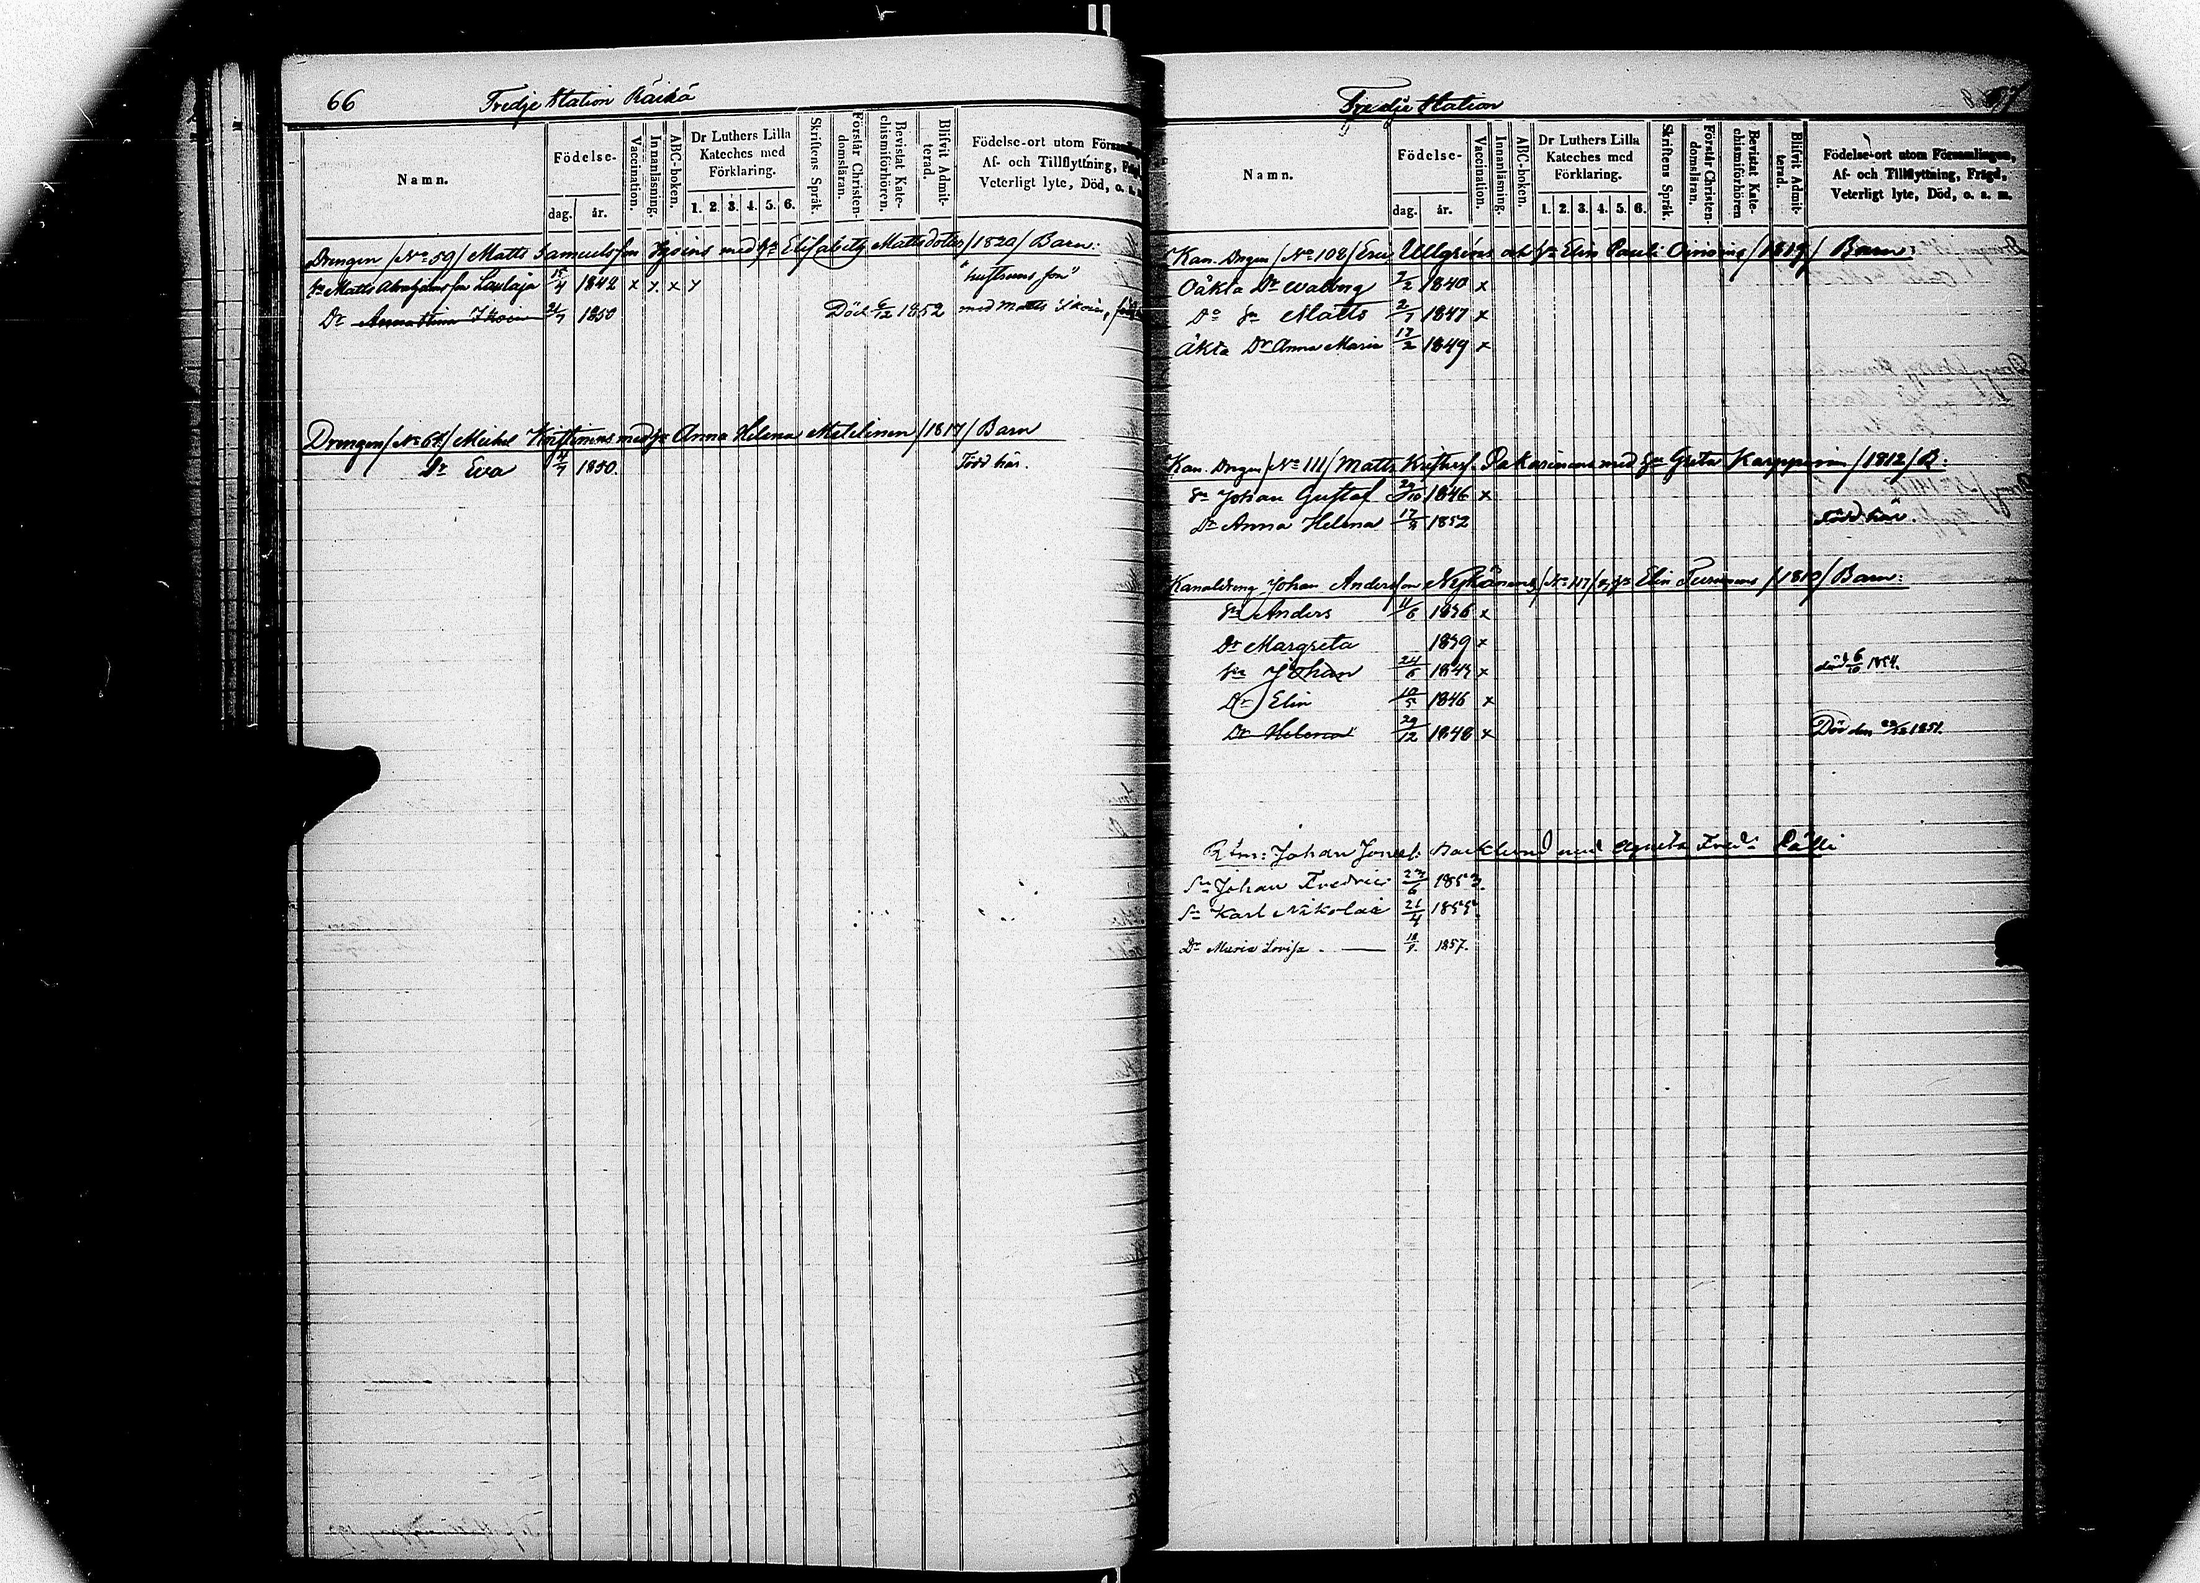 66 Tredje Station Räikä
Namn.
Födelse-
dag. år.
Vaccination.
Innanläsning.
ABC-boken.
Dr Luthers Lilla Kateches med Förklaring.
1. 2. 3. 4. 5. 6.
Skriftens Språk.
Förstår Christendomsläran.
Bevistat Katechismiförhören.
Blifvit Admitterad.
Födelse-ort utom
Af- och Tillflyttning,
Veterligt lyte, Död, o. s. m.
Drengen /No 59/ Matts Samuelsson med hu Elisabeth Mattsdotter /1820/ Barn:
Matts Abrahamsson 15/4 1842 x x x x "hustruns son"
Dr 1850 Död 6/12 1852 med Matts Ikoin,
Drengen /No 61/ Michel med hu Anna Helena /1817/ Barn
Dr Eva 1850. Född här.
Tredje Station 67
Namn.
Födelse-
dag. år.
Vaccination.
Innanläsning.
ABC-boken.
Dr Luthers Lilla Kateches med Förklaring.
1. 2. 3. 4. 5. 6.
Skriftens Språk.
Förstår Christendomsläran.
Bevistat Katechismiförhören
Blifvit Admitterad.
Födelse-ort utom Församlingen,
Af- och Tillflyttning, Frägd,
Veterligt lyte, Död, o. s. m.
Kan. Drgen /No 108/ Eric Ullgréns och hu Elin Pauli Oinoins /1819/ Barn:
Oäkta Dr Walborg 2/2 1840 x
Do Sn Matts 2/7 1847 x
Äkta Dr Anna Maria 17/2 1849 x
Kan. Drgen /No 111/ Matts Pakarinens med hu Greta Karppinen /1812/ B:
Sn Johan Gustaf 29/10 1846 x
Dr Anna Helena 1852 Född här.
Kanaldreng Johan Andersson Nykänens /No 117/ hu Elin /1810/ Barn:
Sn Anders 11/6 1836 x
Dr Margreta 1839 x
Sn Johan 24/6 1843 x död 1854.
Dr Elin 10/5 1846 x
Dr Helena 29/12 1848 x Död den 1851.
Johan Josefs. Backlund med Agneta Fred: Pälli
Sn Johan Fredric 23/6 1853.
Sn Karl Nikolai 21/4 1855.
Dr Maria Lovisa. — 1857.